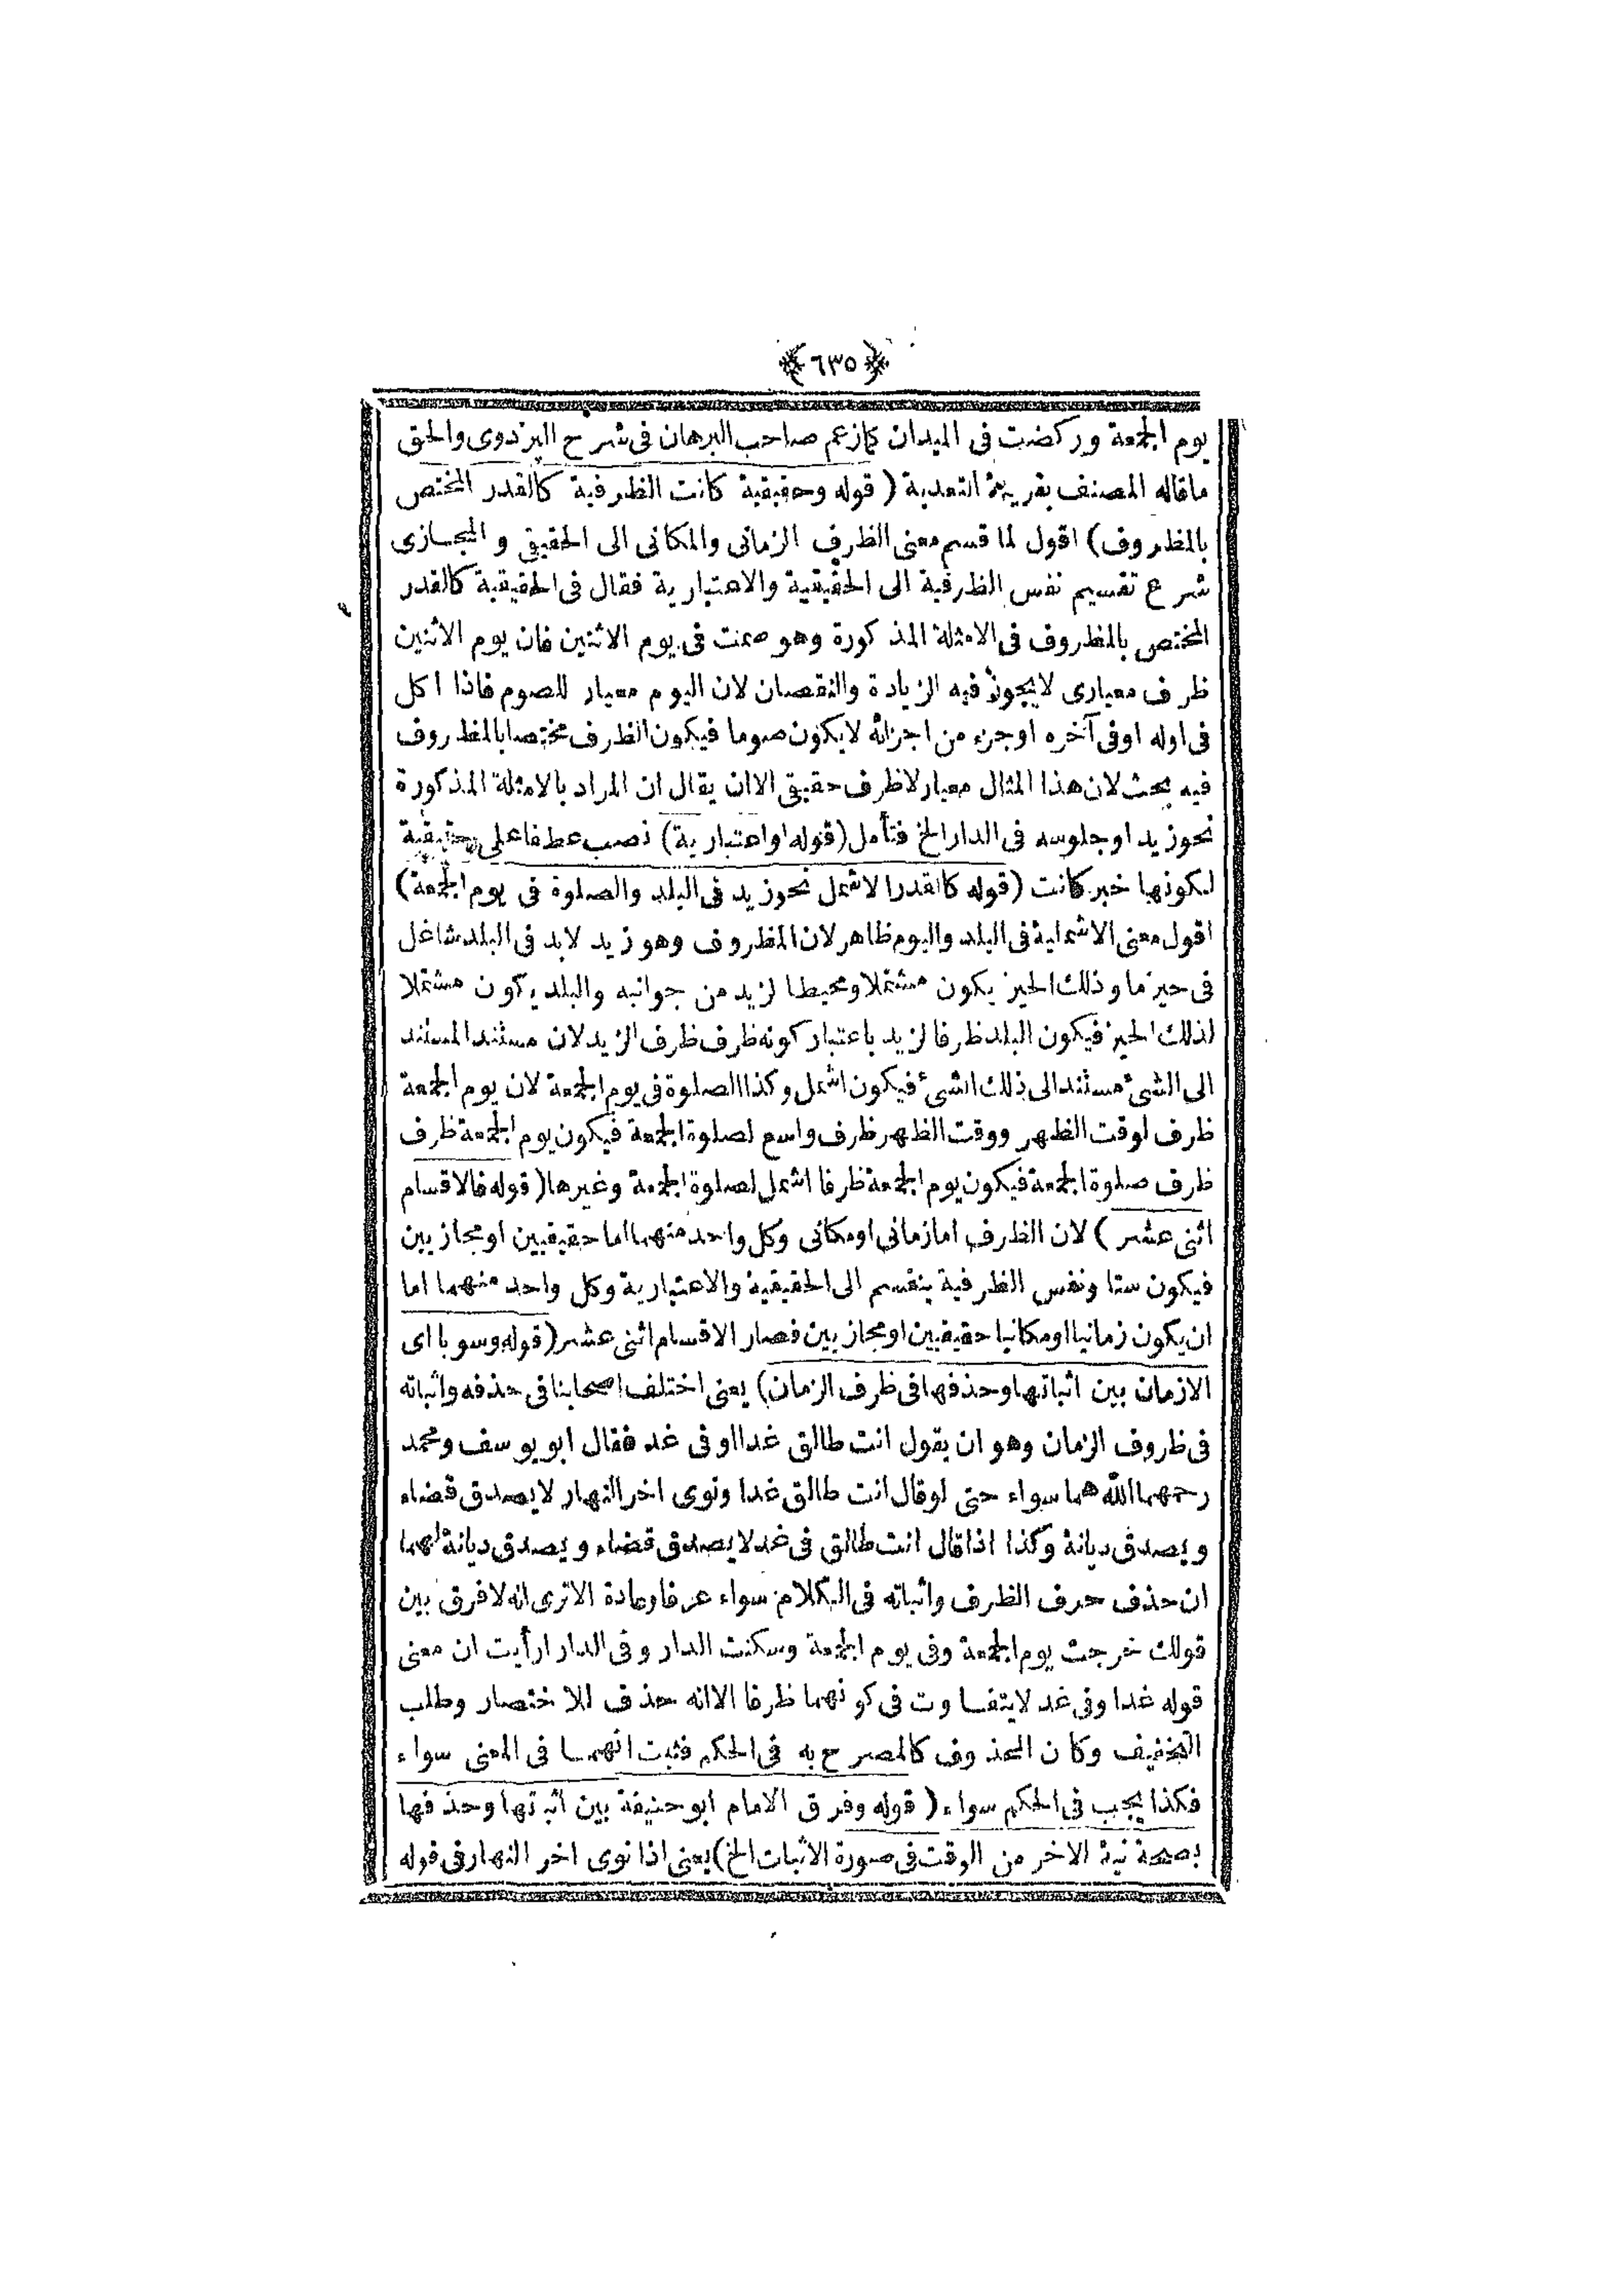 ﴿٦٣٥﴾
يوم الجمعة وركضت فى الميدان كما زعم صاحب البرهان فى شرح البزدوى والحق
ماقاله المصنف بقرينة التعدية ( قوله وحقيقية كانت الظرفية كالقدر المختص
بالمظروف) اقول لما قسم معنى الظرف الزمانى والمكانى الى الحقيقى و المجازى
شرع تقسيم نفس الظرفية الى الحقيقية والاعتبارية فقال فى الحقيقية كالقدر
المختص بالمظروف فى الامثلة المذكورة وهو صمت فى يوم الاثنين فان يوم الاثنين
ظرف معيارى لايجوز فيه الزيادة والنقصان لان اليوم معيار للصوم فاذا اكل
فى اوله اوفى آخره اوجزء من اجزائه لايكون صوما فيكون الظرف مختصا بالمظروف
فيه بحث لان هذا المثال معيار لاظرف حقيقى الا ان يقال ان المراد بالامثلة المذكورة
نحو زيد اوجلوسه فى الدار الخ فتأمل (قوله اواعتبارية) نصب عطفا على حقيقية
لكونها خبر كانت (قوله كالقدر الاشمل نحوزيد فى البلد والصلوة فى يوم الجمعة)
اقول معنى الاشملية فى البلد واليوم ظاهر لان المظروف وهو زيد لابد فى البلد شاغل
فى حيز ما وذلك الحيز يكون مشتملا ومحيطا لزيد من جوانبه والبلد يكون مشتملا
لذلك الحيز فيكون البلد ظرفا لزيد باعتبار كونه ظرف ظرف الزيد لان مستند المستند
الى الشئ مستند الى ذلك الشئ فيكون اشمل وكذا الصلوة فى يوم الجمعة لان يوم الجمعة
ظرف لوقت الظهر ووقت الظهر ظرف واسع لصلوة الجمعة فيكون يوم الجمعة ظرف
ظرف صلوة الجمعة فيكون يوم الجمعة ظرفا اشمل لصلوة الجمعة وغيرها ( قوله فالاقسام
اثنى عشر ) لان الظرف اما زمانى اومكانى وكل واحد منهما اما حقيقيين او مجازيين
فيكون ستا ونفس الظرفية ينقسم الى الحقيقية والاعتبارية وكل واحد منهما اما
ان يكون زمانيا اومكانيا حقيقيين اومجازيين فصار الاقسام اثنى عشر (قوله وسويا اى
الازمان بين اثباتها وحذفها فى ظرف الزمان) يعنى اختلف اصحابنا فى حذفه واثباته
فى ظروف الزمان وهو ان يقول انت طالق غدا اوفى غد فقال ابو يوسف ومحمد
رحمهما الله هما سواء حتى لوقال انت طالق غدا ونوى اخر النهار لايصدق قضاء
ويصدق ديانة وكذا اذا قال انت طالق فى غد لايصدق قضاء ويصدق ديانة لهما
ان حذف حرف الظرف واثباته فى الكلام سواء عرفا وعادة الاترى انه لافرق بين
قولك خرجت يوم الجمعة وفى يوم الجمعة وسكنت الدار وفى الدار ارأيت ان معنى
قوله غدا وفى غد لايتفاوت فى كونهما ظرفا الاانه حذف للاختصار وطلب
التخفيف وكان المحذوف كالمصرح به فى الحكم فثبت انهما فى المعنى سواء
فكذا يجب فى الحكم سواء ( قوله وفرق الامام ابوحنيفة بين اثباتها وحذفها
بصحة نية الاخر من الوقت فى صورة الاثبات الخ) يعنى اذا نوى اخر النهار فى قوله